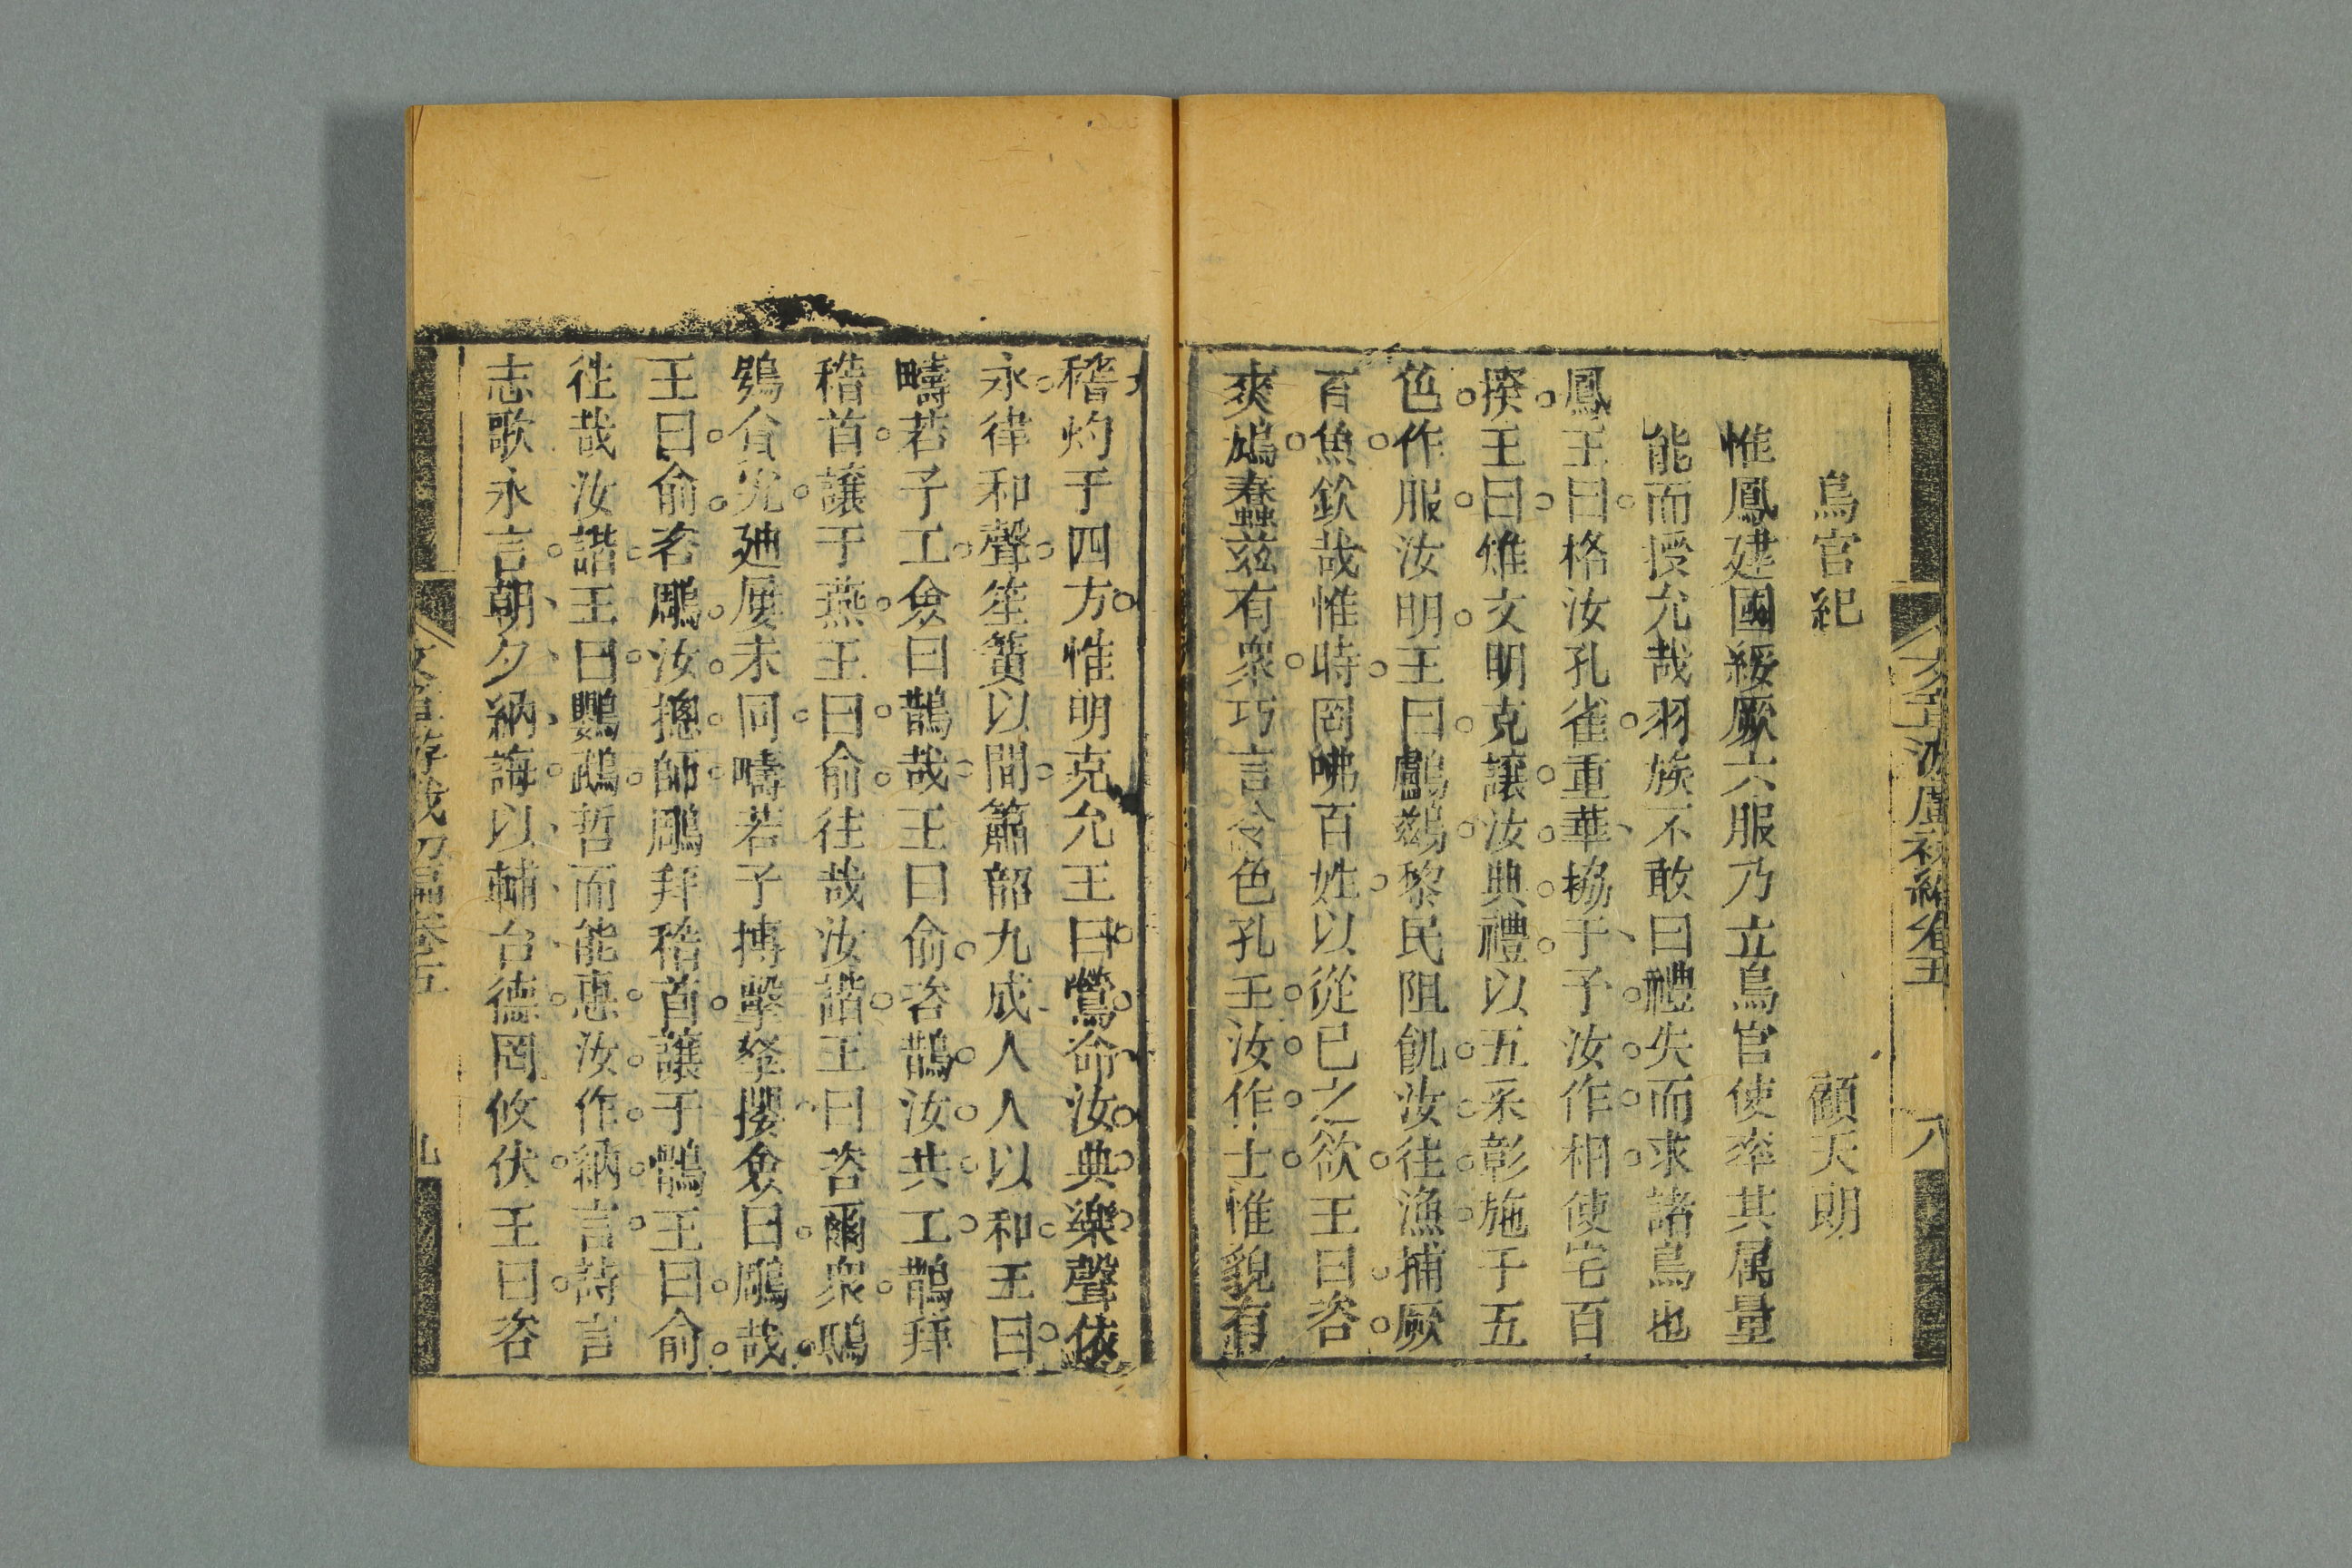 鳥官紀 顧天朗
惟鳳建國綏厥六服乃立鳥官使率其属量
能而授允哉羽族不敢曰禮失而求諸鳥也
鳳王曰格汝孔雀重華協于予汝作相使宅百
揆王曰雉文明克讓汝典禮以五采彰施于五
色作服汝明王曰鸕鷀黎民阻飢汝往漁捕厥
百魚欽哉惟時罔咈百姓以從已之欲王曰咨
爽鳩蠢茲有衆巧言令色孔壬汝作士惟貌有
稽灼于四方惟明克允王曰鶯命汝典樂聲依
永律和聲笙簧以間簫韶九成人人以和王曰
疇若予工僉曰鵲哉王曰俞咨鵲汝共工鵲拜
稽首讓于燕王曰俞往哉汝諧王曰咨爾衆鴟
鴞分宄廸屢未同疇若予搏擊拏攫僉曰鵰哉
王曰俞咨鵰汝摠師鵰拜稽首讓于鶻王曰俞
徃哉汝諧王曰鸚鵡哲而能惠汝作納言詩言
志歌永言朝夕納誨以輔台德罔攸伏王曰咨
文章游戲初編卷五
八
九